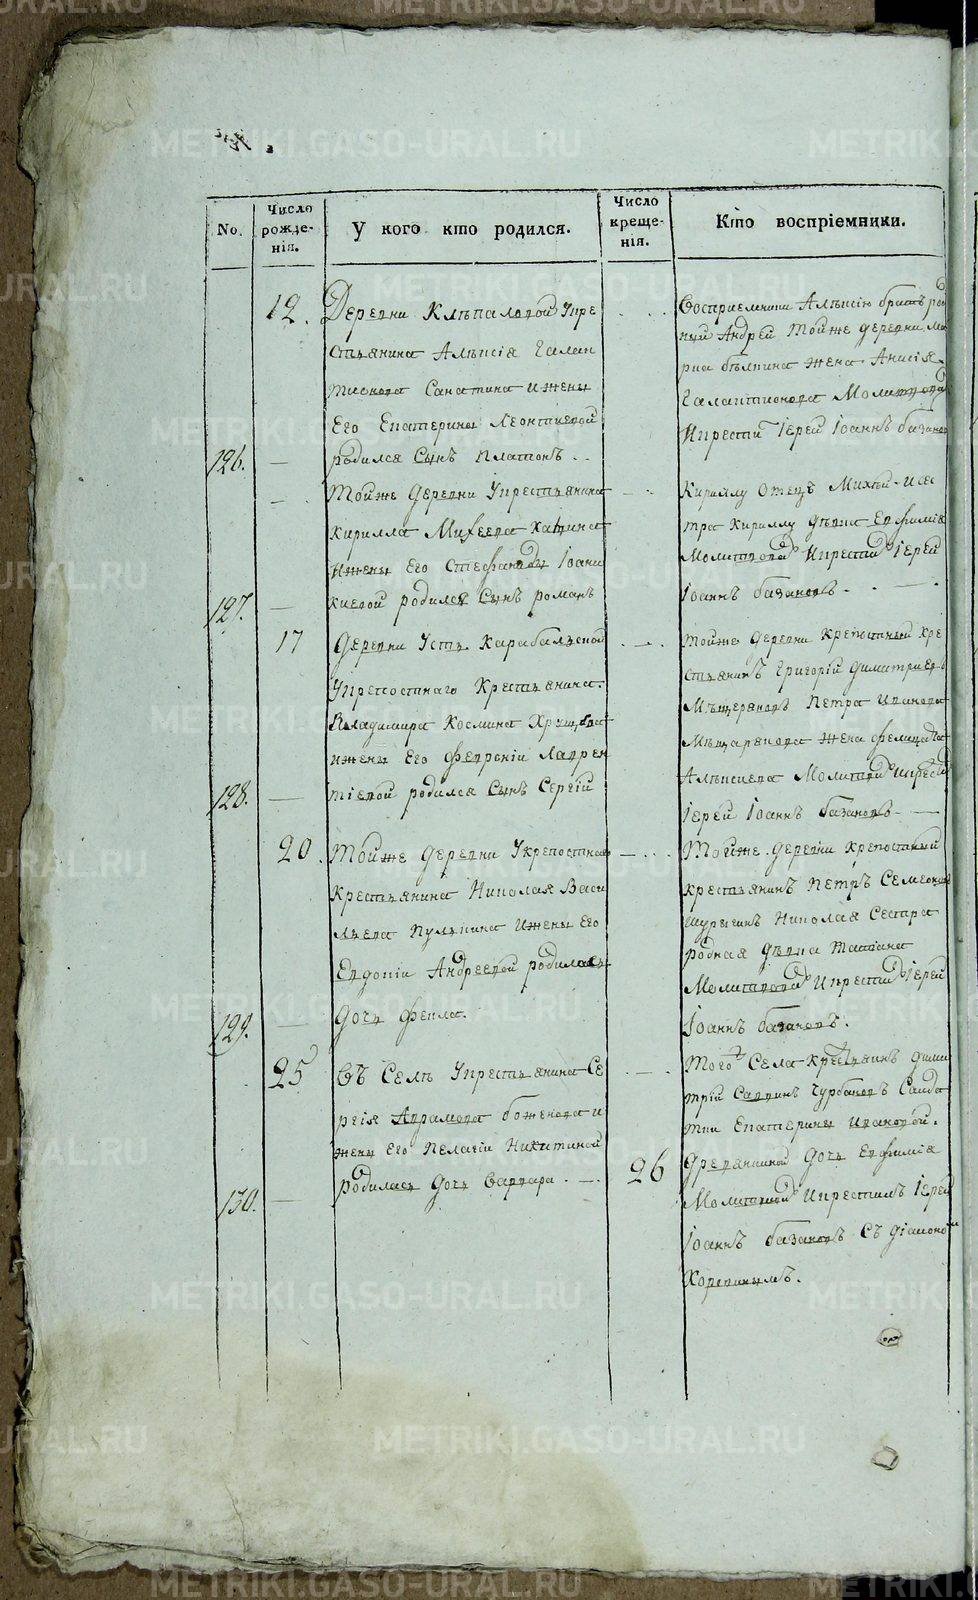 No.
Число рожде-нія.
У кого кто родился.
Число креще-нія.
Кто воспріемники.
12.
Деревни Клѣпаловой укре
стьянина Алѣксія Галак
тионова Санатина ижены
Его Екатерины Леонтиевой
126.
родился Сынъ Платонъ
Восприемники Алѣксію братъ род
ный Андрей Тойже деревни
жена Анисія
Галактионова Молитвовал
Икрестил Іерей Іоаннъ базанов
Тойже деревни укрестьянина
Кирилла Михеева
Ижены Его Стефаниды Іоани
127.
киевой родился Сынъ романъ
Кириллу отецъ Михей Исес
тра Кириллу дѣвка Ефимія
Молитвовал Икрестил Іерей
Іоаннъ базановъ
17
деревни Усть Карабалзской
Укрепостнаго Крестьянина
Владимира Космина
ижены Его Февроніи Лаврен
128.
тіевой родился Сынъ Сергій
тойже деревни крепостный кре
стьянинъ Григорій димитриевъ
Мѣщеряковъ Петра Иванова
Мѣщарекова жена фелицата
Алѣксиева Молитвовал Икрестил
Іерей Іоаннъ базановъ
20.
Тойже деревни Укрепостнаго
Крестьянина Николая Васи
льева Пулькина Ижены Его
Евдокіи Андреевой родилась
129.
дочь фекла.
Тойже деревни Крепостный
крестьянинъ Петръ Семеоновъ
Шурыгинъ Николая Сестра
родная дѣвка Татіана
Молитвовал Икрестил Іерей
Іоаннъ базановъ.
25
Въ Селѣ Укрестьянина Се
ргія Аврамова боженова и
жены Его Пелагіи Никитиной
130.
родилась дочь Варвара.
26
Того Села Крестьянинъ дими
трій Саввинъ Чурбановъ Салда
тки Екатерины Ивановой.
дочь Евфимія
Молитвовал Икрестилъ Іерей
Іоаннъ базановъ Съ діаконом
Корепинымъ.
METRIKI.GASO-URAL.RU